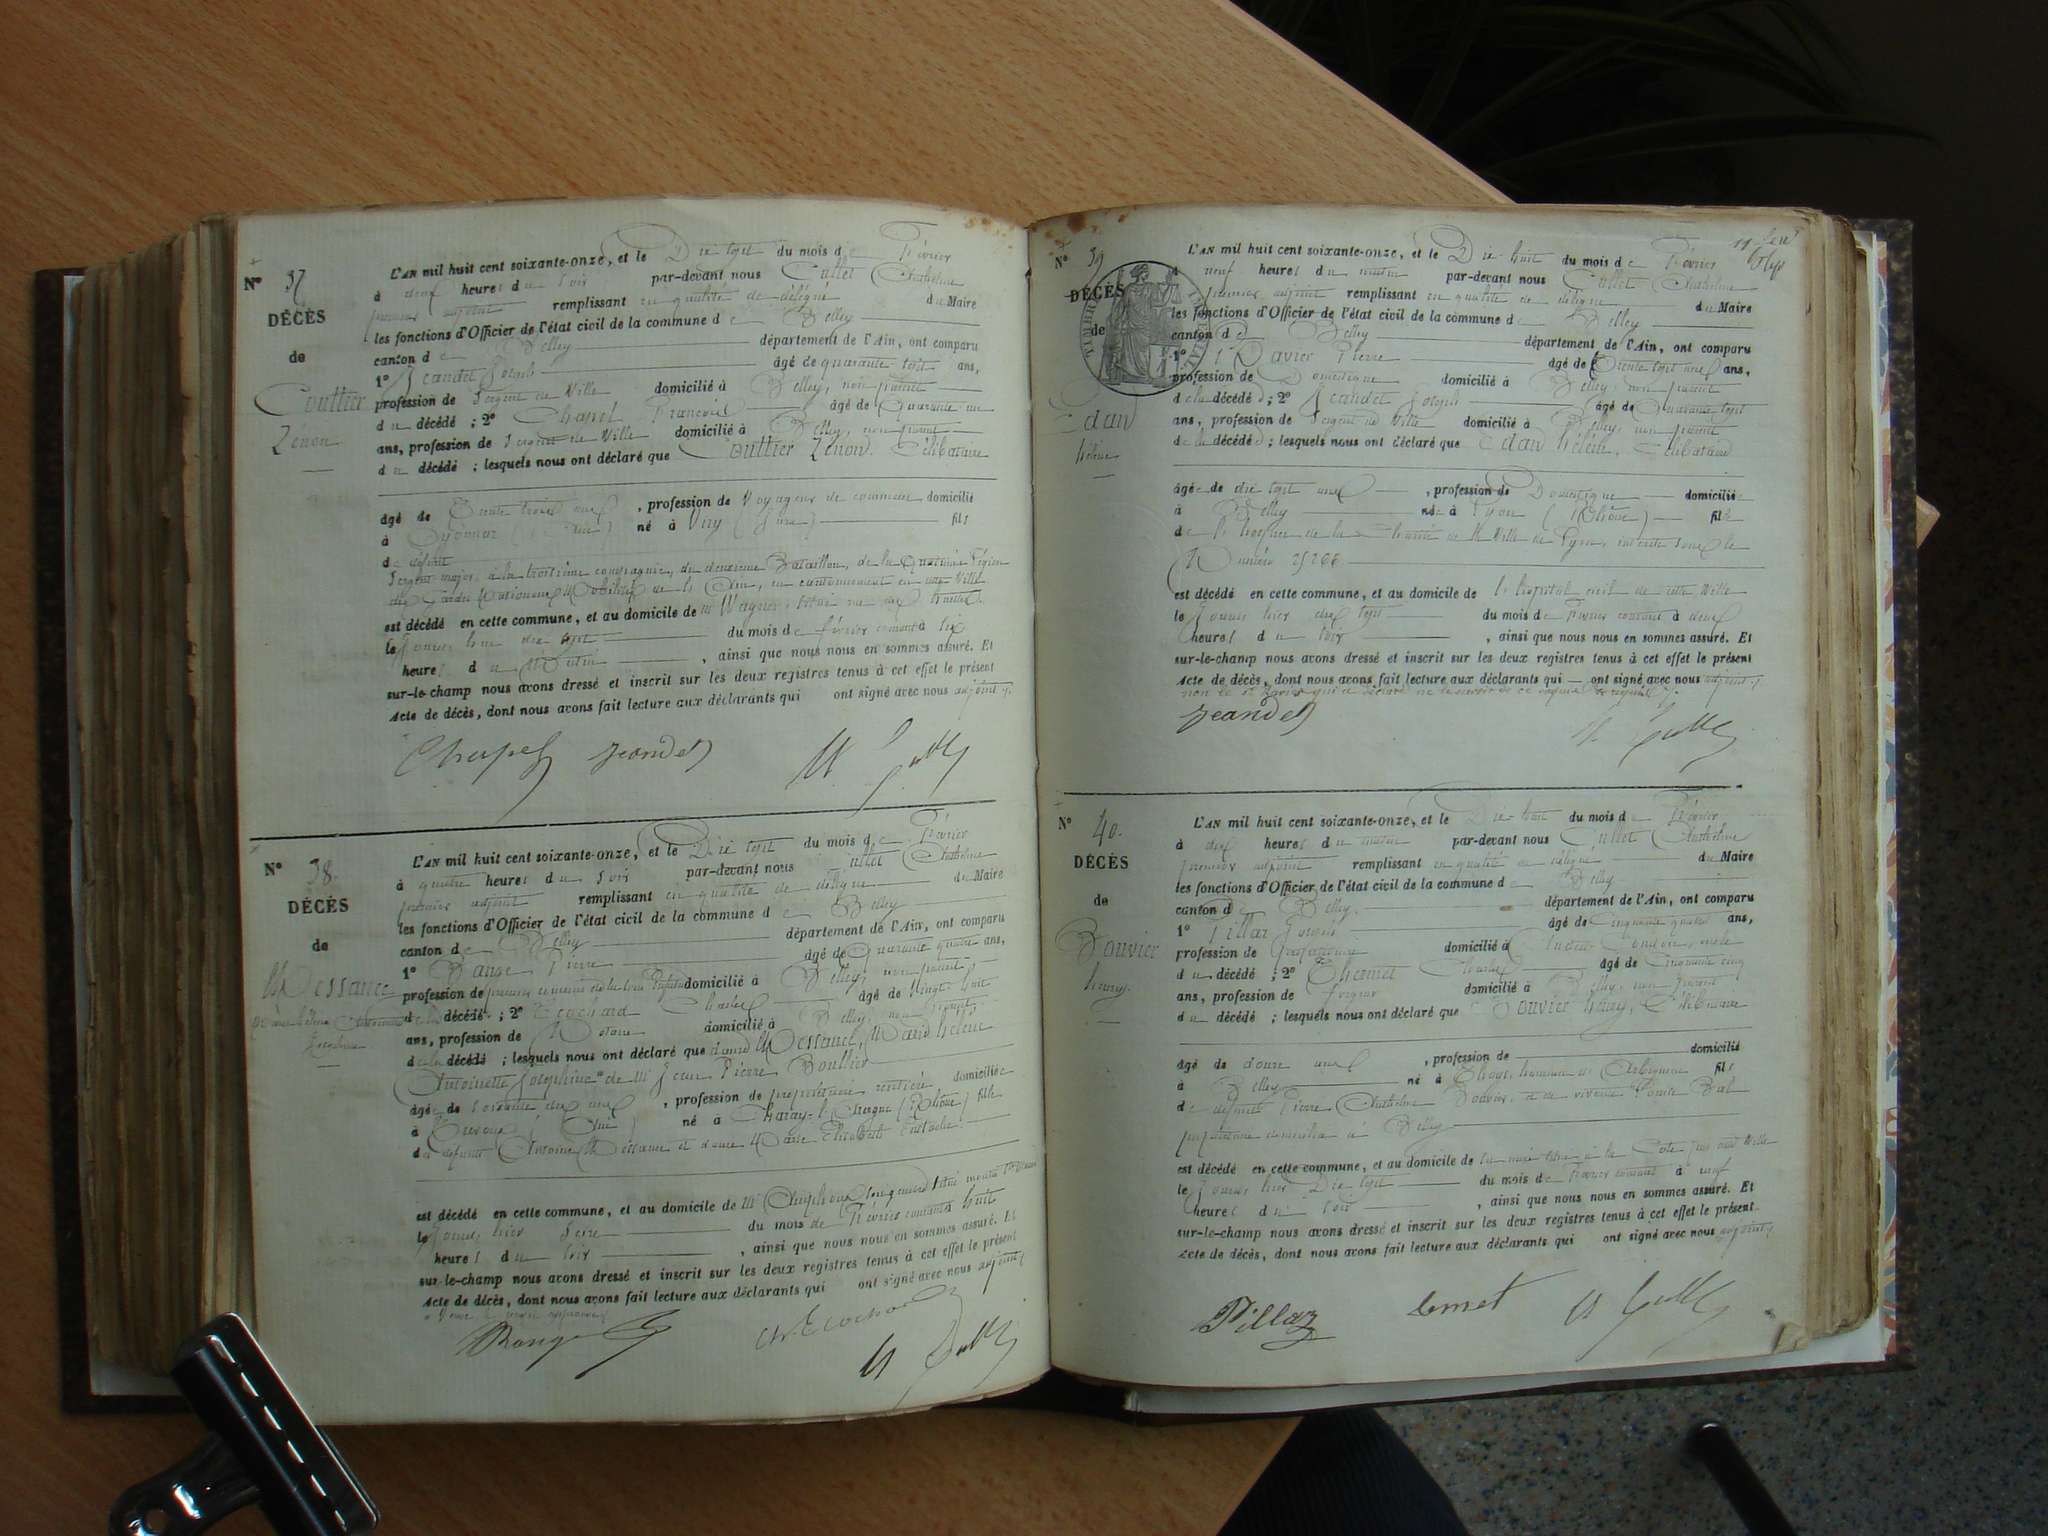 N° 37
DÉCÈS
de
Couttier
Zénon
L'AN mil huit cent soixante-onze, et le Dix sept du mois de Février
à deux heures du soir par-devant nous Cullet Anthelme
premier adjoint remplissant en qualité de délégué du Maire
les fonctions d'Officier de l'état civil de la commune de Belley
canton de Belley département de l'Ain, ont comparu
1° Jeandet Joseph âgé de quarante sept ans,
profession de Sergent de Ville domicilié à Belley, non parent
du décédé ; 2° Chapel François âgé de Quarante un
ans, profession de Sergent de Ville domicilié à Belley, non parent
du décédé ; lesquels nous ont déclaré que Couttier Zénon, Célibataire
âgé de Trente trois ans, profession de Voyageur de commerce domicilié
à Oyonnax (Ain) né à Viry (Jura) fils
de défunt
Sergent major à la troisième compagnie, du deuxième Bataillon, de la Quatrième Légion
des Gardes Nationaux Mobilisés de l'Ain, en cantonnement en cette Ville
est décédé en cette commune, et au domicile de Mr Wagner, situé rue des
le Jourd'hui dix sept du mois de février courant à six
heures du Matin, ainsi que nous nous en sommes assuré. Et
sur-le-champ nous avons dressé et inscrit sur les deux registres tenus à cet effet le présent
Acte de décès, dont nous avons fait lecture aux déclarants qui ont signé avec nous adjoint
Chapel Jeandet A. Cullet
N° 38
DÉCÈS
de
Messance
Marie hélène Antoinette
Joséphine
L'AN mil huit cent soixante-onze, et le Dix sept du mois de Février
à quatre heures du soir par-devant nous Cullet Anthelme
premier adjoint remplissant en qualité de délégué du Maire
les fonctions d'Officier de l'état civil de la commune de Belley
canton de Belley département de l'Ain, ont comparu
1° Pierre âgé de Quarante quatre ans,
profession de premier commis de la Sous Préfecture domicilié à Belley, non parent
de la décédée ; 2° Ecochard Charles âgé de Vingt huit
ans, profession de Notaire domicilié à Belley, non parent
de la décédée ; lesquels nous ont déclaré que dame Messance, Marie hélène
Antoinette Joséphine de Mr Jean Pierre
âgée de soixante dix ans, profession de propriétaire rentière domiciliée
à Trévoux (Ain) né à (Rhône) fille
de défunts Antoine Messance et dame Marie Elisabeth
est décédé en cette commune, et au domicile de Mr
le Jour hier Seize du mois de Février courant à huit
heures du soir, ainsi que nous nous en sommes assuré. Et
sur-le-champ nous avons dressé et inscrit sur les deux registres tenus à cet effet le présent
Acte de décès, dont nous avons fait lecture aux déclarants qui ont signé avec nous adjoint
Ch. Ecochard A. Cullet
N° 39
DÉCÈS
de
Edan
hélène
L'AN mil huit cent soixante-onze, et le Dix huit du mois de Février
à neuf heures du matin par-devant nous Cullet Anthelme
premier adjoint remplissant en qualité de délégué du Maire
les fonctions d'Officier de l'état civil de la commune de Belley
canton de Belley département de l'Ain, ont comparu
1° Pierre âgé de Trente sept ans,
profession de Domestique domicilié à Belley, non parent
de la décédée ; 2° Jeandet Joseph âgé de Quarante sept
ans, profession de Sergent de Ville domicilié à Belley, non parent
de la décédée ; lesquels nous ont déclaré que Edan hélène, Célibataire
âgée de dix sept ans, profession de Domestique domiciliée
à Belley née à Lyon (Rhône) fille
de l'hospice de la Charité de la Ville de Lyon, inscrite sous le
Numéro 25266
est décédé en cette commune, et au domicile de l'hôpital civil de cette Ville
le Jour hier dix sept du mois de Février courant à deux
heures du soir, ainsi que nous nous en sommes assuré. Et
sur-le-champ nous avons dressé et inscrit sur les deux registres tenus à cet effet le présent
Acte de décès, dont nous avons fait lecture aux déclarants qui ont signé avec nous adjoint
non le sr qui a déclaré ne le savoir de ce enquis et requis
Jeandet A. Cullet
N° 40
DÉCÈS
de
Bouvier
henry
L'AN mil huit cent soixante-onze, et le Dix huit du mois de Février
à dix heures du matin par-devant nous Cullet Anthelme
premier adjoint remplissant en qualité de délégué du Maire
les fonctions d'Officier de l'état civil de la commune de Belley
canton de Belley département de l'Ain, ont comparu
1° Pillaz Joseph âgé de Cinquante quatre ans,
profession de domicilié à oncle
du décédé ; 2° Charles âgé de Cinquante cinq
ans, profession de domicilié à Belley, non parent
du décédé ; lesquels nous ont déclaré que Bouvier henry, Célibataire
âgé de douze ans, profession de domicilié
à Belley né à commune de Arbignieu fils
de défunt Pierre Anthelme Bouvier, et de vivante
domiciliée à Belley
est décédé en cette commune, et au domicile de
le Jour hier Dix sept du mois de Février courant à neuf
heures du soir, ainsi que nous nous en sommes assuré. Et
sur-le-champ nous avons dressé et inscrit sur les deux registres tenus à cet effet le présent
Acte de décès, dont nous avons fait lecture aux déclarants qui ont signé avec nous adjoint
Pillaz A. Cullet